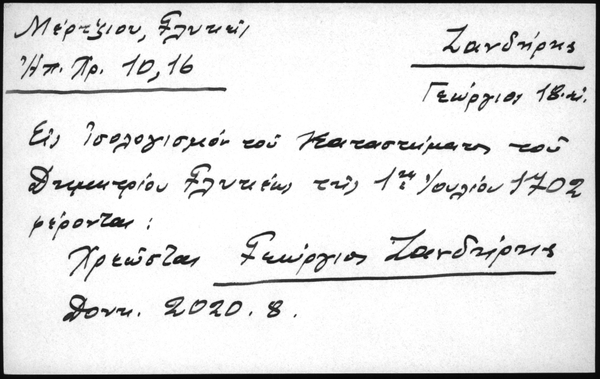 Μέρτζιου, Γλυκεῖς
Ἠπ. Χρ. 10,16
Ζανδήρης
Γεώργιος 18. αἰ.
Εἰς Ἰσολογισμόν τοῦ Καταστήματος τοῦ
Δημητρίου Γλυκέως τῆς 1ης Ἰουλίου 1702
φέρονται:
Χρεῶσται Γεώργιος Ζανδήρης
Δουκ. 2020. 8.